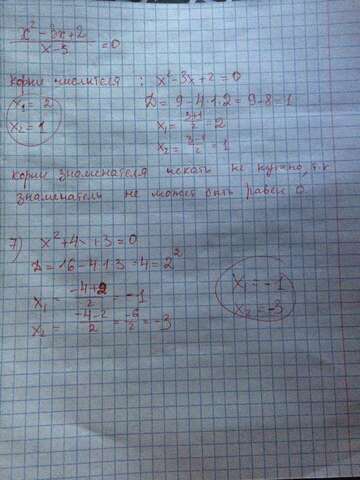 x² - 3x + 2 / x - 5 = 0
корни числителя : x² - 3x + 2 = 0
x₁ = 2
x₂ = 1
D = 9 - 4·1·2 = 9 - 8 = 1
x₁ = 3+1 / 2 = 2
x₂ = 3-1 / 2 = 1
корни знаменателя искать не нужно, т.к
знаменатель не может быть равен 0.
7) x² + 4x + 3 = 0
D = 16 - 4·1·3 = 4 = 2²
x₁ = -4+2 / 2 = -1
x₂ = -4-2 / 2 = -6 / 2 = -3
x₁ = -1
x₂ = -3